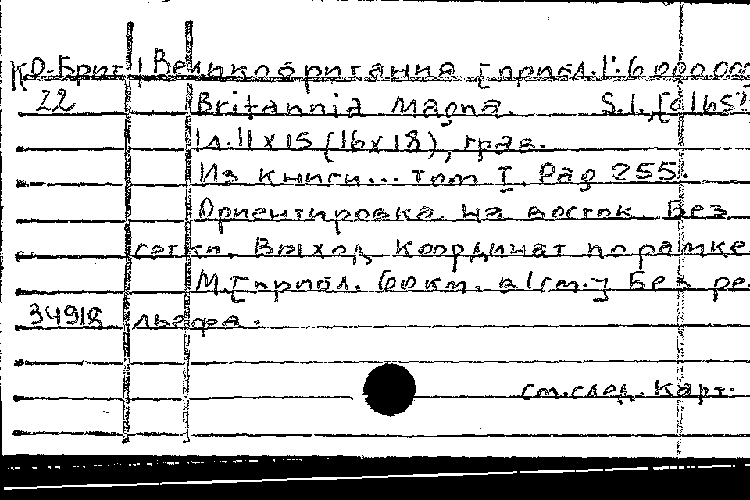 К О-Брит Великобритания [прибл.1:6000000]
22 Britannia Magna. S.l.,[d 165?
1л.11х15 (16х18), грав.
Из книги... том I. Pag 255.
Ориентировка на восток. Без
сетки. Выход координат по рамке
М.[прибл. 60км. в 1см.] Без ре-
34918 льефа.
см.след. карт.